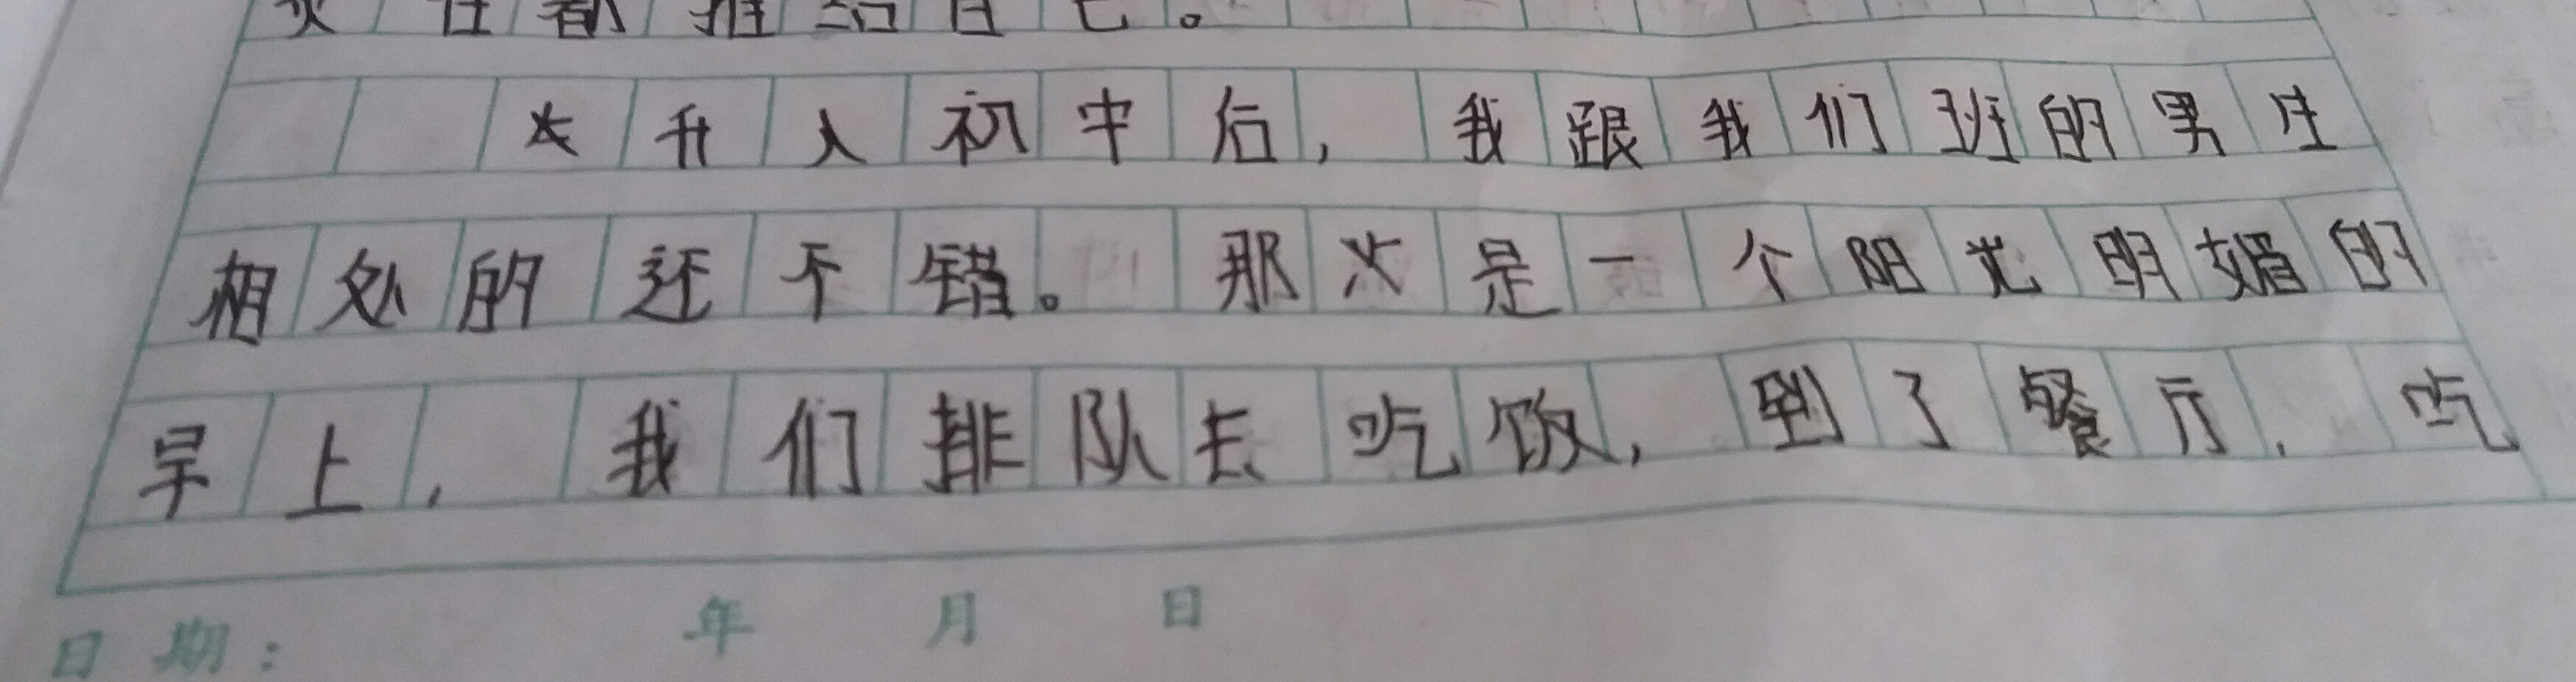 责任都推给自己。
升入初中后，我跟我们班的男生
相处的还不错。那次是一个阳光明媚的
早上，我们排队去吃饭，到了餐厅，吃
日期： 年 月 日